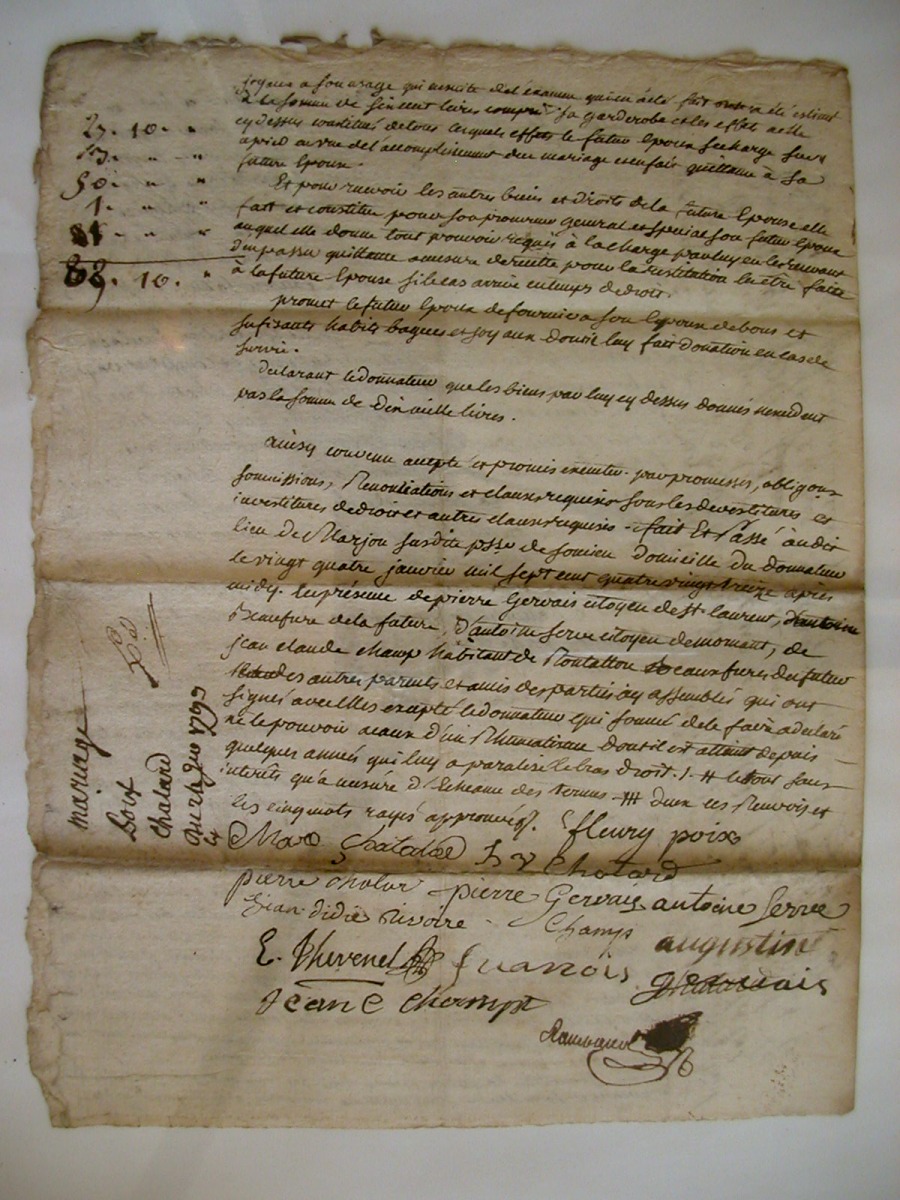 joyaux a son usage qui resulte de l'examen qui en a été fait ont été estimé
a la somme de six cent livres compris sa garderobe et les effets a elle
cy dessus constitués de tous lesquels effets le futur Epoux se charge
apries en vue de l'accomplissement du mariage en fait quittance à sa
future Epouse.
27. 10. "
13. " "
50. " "
1. " "
" "
88. 10. "
Et pour recevoir les autres biens et droits de la future Epouse elle
fait et constitue pour son procureur general et special son futur Epoux
auquel elle donne tout pouvoir requis à la charge par luy en les recevant
d'en passer quittance a mesure de recette pour la restitution en être faite
à la future Epouse si le cas arrive en temps de droit.
promet le futur Epoux de fournir a son Epouse de bons et
sufisants habits bagues et joyaux dont il luy fait donation en cas de
survie.
declarant le donnateur que les biens par luy cy dessus donnés n'excedent
pas la somme de Dix mille livres.
ainsy convenu accepté et promis executer par promesses, obligons
soumissions, Renontiations et clauses requises sous les devestitures et
investitures de droit et autres clauses requises - fait Et Passé audit
lieu de Marjon susdite psse de domicille du donnateur
le vingt quatre janvier mil sept cent quatre vingt treize après
midy. En présence de pierre Gervais citoyen de st laurent, d'antoine
Beaufrere de la future, d'antoine serve citoyen de mornant, de
jean claude champ habitant de Beauxfreres du futur
et autres parents et amis des parties icy assemblés qui ont
signés avec elles excepté le donnateur qui sommé de le faire a declaré
ne le pouvoir a caux d'un Rhumatisme dont il est attaint depuis
quelques années qui luy a paralisé le bras droit. /. # le tout sans
interêts qu'a mesure d'Echeance des termes # deux es Renvois et
les cinq mots rayés approuvés.
mariage
Poix
Chatard
Du 24 janv 1793
fleury poix
Marie Chatalad
Chatard
pierre
pierre Gervais
antoine Serve
jean didié rivoire
Champ
augustin
E. Thevenet
fransois
Gervais
Jeane Champt